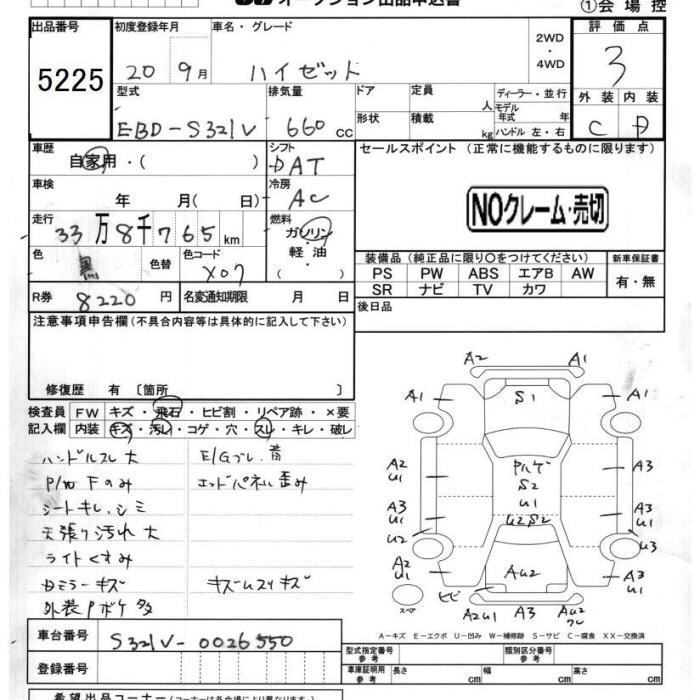 オークション出品申込書
①会場控
出品番号 初度登録年月 車名・グレード 評価点
5225 20 9月 ハイゼット 2WD・4WD 3
型式 排気量 ドア 定員 人 ディーラー・並行 外装 内装
EBD-S321V 660cc 形状 積載 kg モデル年式 年 ハンドル 左・右 C D
車歴 シフト セールスポイント(正常に機能するものに限ります)
自家用・( ) DAT
車検 冷房
年 月(日) AC
NOクレーム・売切
走行 燃料
33万8千765km ガソリン・軽・油
色 色替 色コード 装備品(純正品に限り○をつけてください) 新車保証書
黒 X07 PS PW ABS エアB AW 有・無
SR ナビ TV カワ
R券 8220円 名変通知期限 月 日 後日品
注意事項申告欄(不具合内容等は具体的に記入して下さい)
修復歴 有〔箇所 〕
検査員 FW キズ・飛石・ヒビ割・リペア跡・×要
記入欄 内装 キズ・汚レ・コゲ・穴・スレ・キレ・破レ
ハンドルスレ大 E/Gブレ、音
P/W Fのみ エンドパネル歪み
シートキレ、シミ
天張り汚れ大
ライトくすみ
Dミラーキズ キズムスリキズ
外装Pボケ多
A2 A1
A1 S1 A1
A2 U1 Pハゲ S2 A3
A3 U1 U1 A3 U1
U2 U2S2 U3
A2 U1 AU2 A3 U1
ヒビ
スペア A2U1 A3 AU2 ワレ
A-キズ E-エクボ U-凹み W-補修跡 S-サビ C-腐食 XX-交換済
車台番号 S321V-0026550
型式指定番号 参考 類別区分番号 参考
登録番号
車庫証明用 参考 長さ cm 幅 cm 高さ cm
希望出品コーナー(コーナーは各会場により異なります)